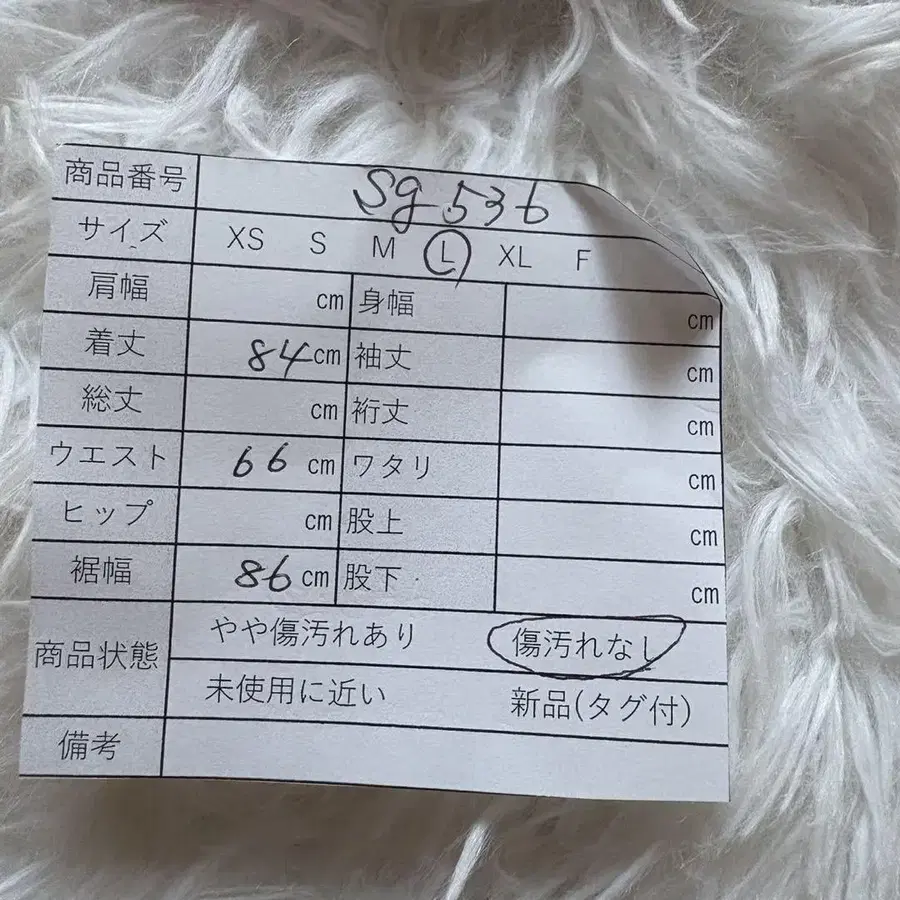 商品番号 Sg536
サイズ XS S M L XL F
肩幅 cm 身幅 cm
着丈 84cm 袖丈 cm
総丈 cm 裄丈 cm
ウエスト 66 cm ワタリ cm
ヒップ cm 股上 cm
裾幅 86cm 股下 cm
商品状態 やや傷汚れあり 傷汚れなし
未使用に近い 新品(タグ付)
備考